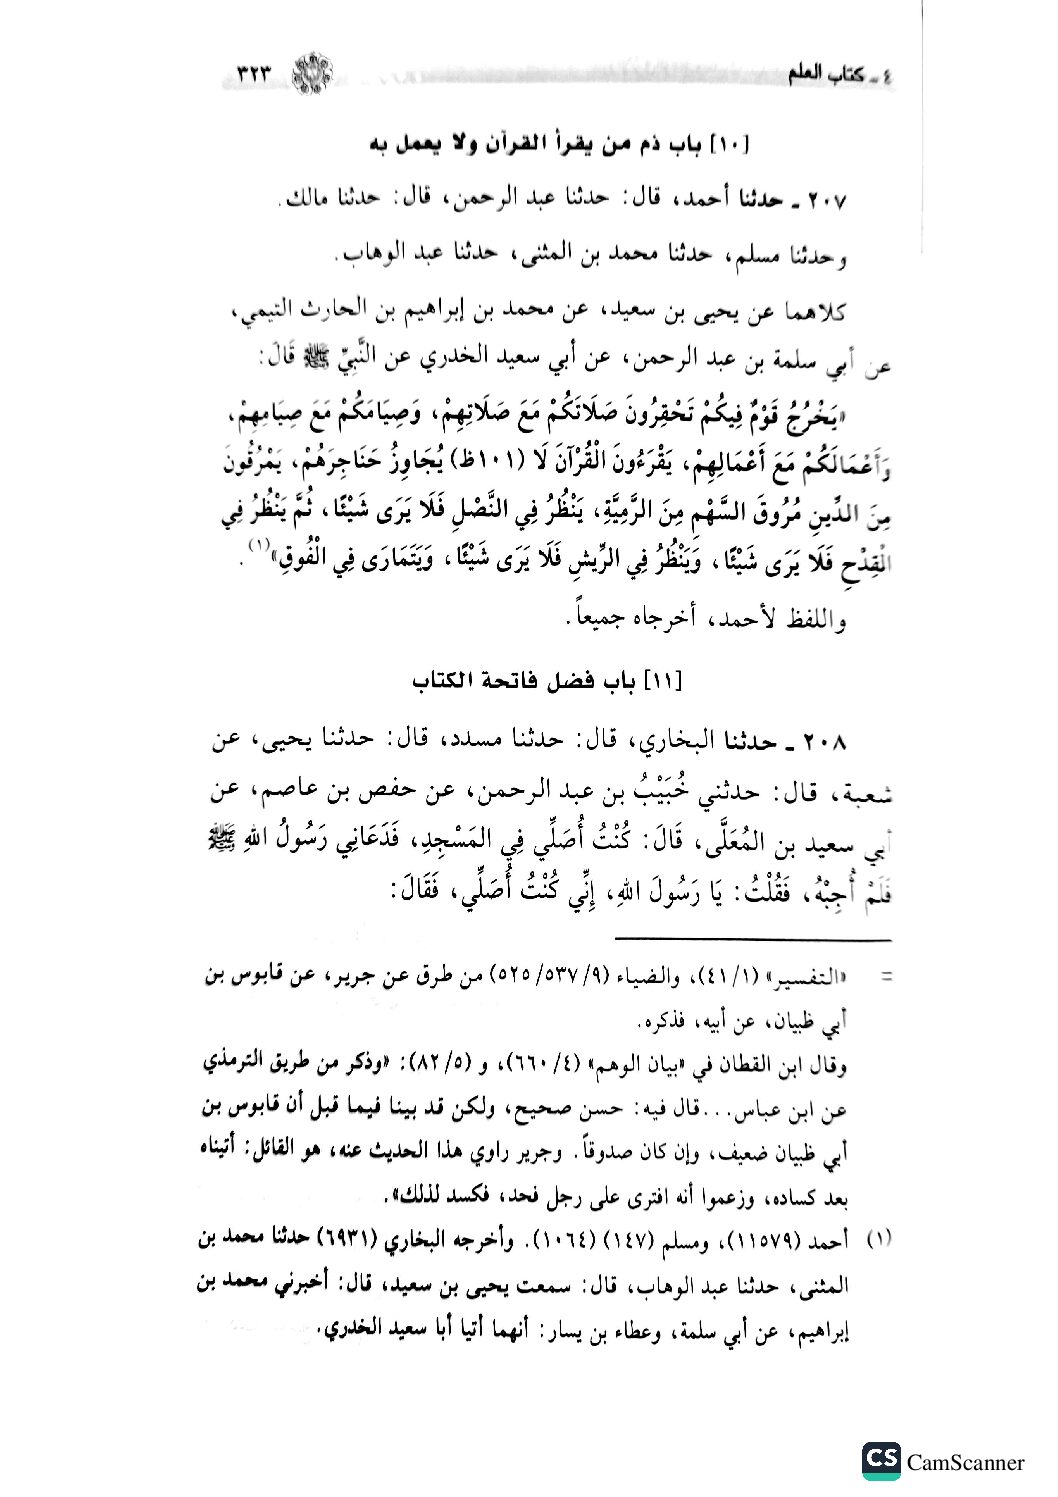 ٤ ـ كتاب العلم ٣٢٣
[١٠] باب ذم من يقرأ القرآن ولا يعمل به
٢٠٧ ـ حدثنا أحمد، قال: حدثنا عبد الرحمن، قال: حدثنا مالك.
وحدثنا مسلم، حدثنا محمد بن المثنى، حدثنا عبد الوهاب.
كلاهما عن يحيى بن سعيد، عن محمد بن إبراهيم بن الحارث التيمي،
عن أبي سلمة بن عبد الرحمن، عن أبي سعيد الخدري عن النَّبِيِّ ﷺ قَالَ:
«يَخْرُجُ قَوْمٌ فِيكُمْ تَحْقِرُونَ صَلَاتَكُمْ مَعَ صَلَاتِهِمْ، وَصِيَامَكُمْ مَعَ صِيَامِهِمْ،
وَأَعْمَالَكُمْ مَعَ أَعْمَالِهِمْ، يَقْرَءُونَ الْقُرْآنَ لَا (١٠١ظ) يُجَاوِزُ حَنَاجِرَهُمْ، يَمْرُقُونَ
مِنَ الدِّينِ مُرُوقَ السَّهْمِ مِنَ الرَّمِيَّةِ، يَنْظُرُ فِي النَّصْلِ فَلَا يَرَى شَيْئًا، ثُمَّ يَنْظُرُ فِي
الْقِدْحِ فَلَا يَرَى شَيْئًا، وَيَنْظُرُ فِي الرِّيشِ فَلَا يَرَى شَيْئًا، وَيَتَمَارَى فِي الْفُوقِ»(١).
واللفظ لأحمد، أخرجاه جميعاً.
[١١] باب فضل فاتحة الكتاب
٢٠٨ ـ حدثنا البخاري، قال: حدثنا مسدد، قال: حدثنا يحيى، عن
شعبة، قال: حدثني خُبَيْبُ بن عبد الرحمن، عن حفص بن عاصم، عن
أبي سعيد بن المُعَلَّى، قَالَ: كُنْتُ أُصَلِّي فِي المَسْجِدِ، فَدَعَانِي رَسُولُ اللهِ ﷺ
فَلَمْ أُجِبْهُ، فَقُلْتُ: يَا رَسُولَ اللهِ، إِنِّي كُنْتُ أُصَلِّي، فَقَالَ:
= «التفسير» (٤١/١)، والضياء (٥٢٥/٥٣٧/٩) من طرق عن جرير، عن قابوس بن
أبي ظبيان، عن أبيه، فذكره.
وقال ابن القطان في «بيان الوهم» (٦٦٠/٤)، و (٨٢/٥): «وذكر من طريق الترمذي
عن ابن عباس...قال فيه: حسن صحيح، ولكن قد بينا فيما قبل أن قابوس بن
أبي ظبيان ضعيف، وإن كان صدوقاً. وجرير راوي هذا الحديث عنه، هو القائل: أتيناه
بعد كساده، وزعموا أنه افترى على رجل فحد، فكسد لذلك».
(١) أحمد (١١٥٧٩)، ومسلم (١٤٧) (١٠٦٤). وأخرجه البخاري (٦٩٣١) حدثنا محمد بن
المثنى، حدثنا عبد الوهاب، قال: سمعت يحيى بن سعيد، قال: أخبرني محمد بن
إبراهيم، عن أبي سلمة، وعطاء بن يسار: أنهما أتيا أبا سعيد الخدري.
CS CamScanner